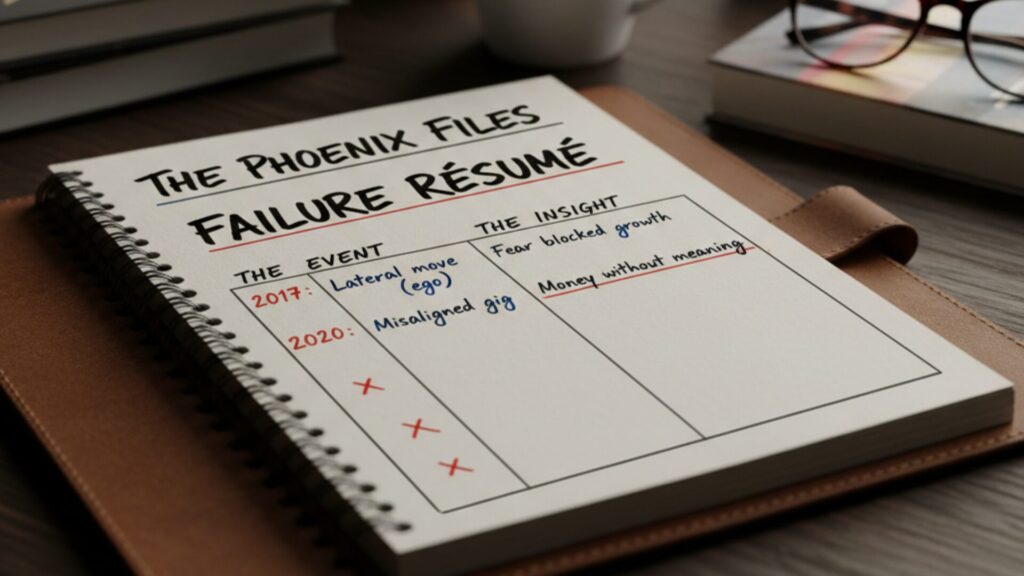 THE PHOENIX FILES
FAILURE RÉSUMÉ
THE EVENT THE INSIGHT
2017: Lateral move (ego) Fear blocked growth
2020: Misaligned gig Money without meaning
X
X
X